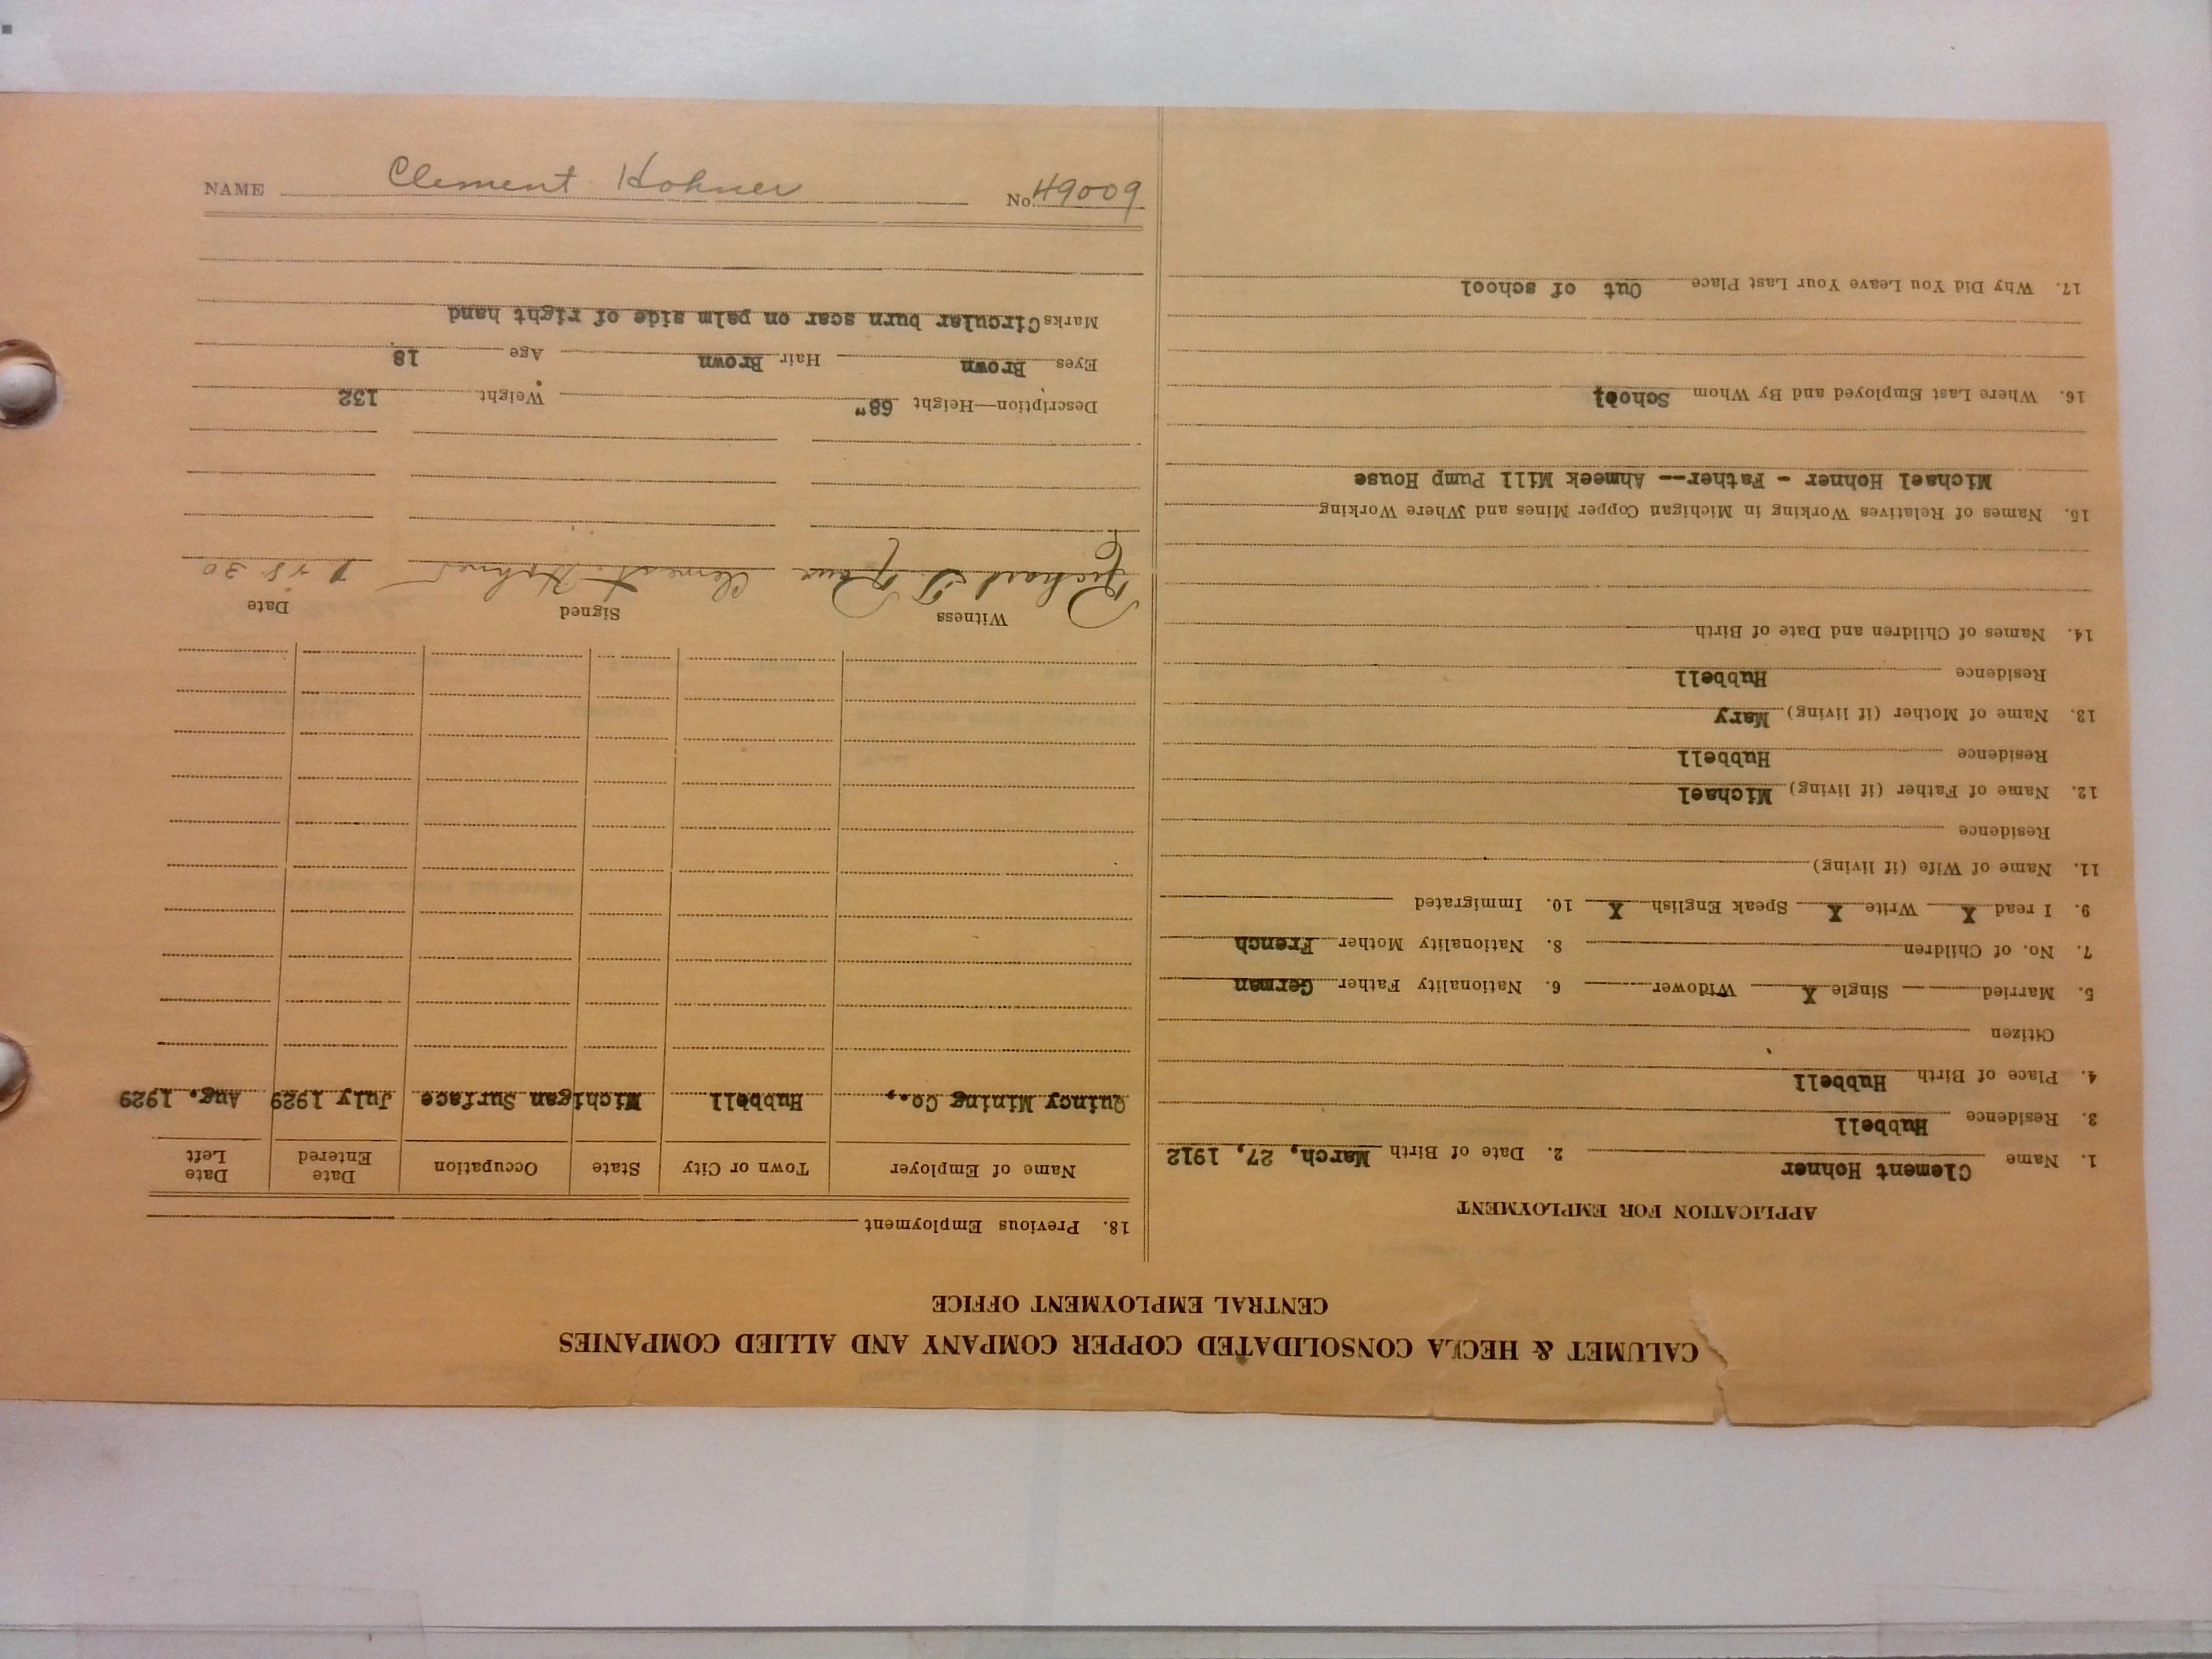 CALUMET & HECLA CONSOLIDATED COPPER COMPANY AND ALLIED COMPANIES
CENTRAL EMPLOYMENT OFFICE
APPLICATION FOR EMPLOYMENT
1. Name Clement Hohner 2. Date of Birth March, 27, 1912
3. Residence Hubbell
4. Place of Birth Hubbell
Citizen
5. Married Single X Widower 6. Nationality Father German
7. No. of Children 8. Nationality Mother French
9. I read X Write X Speak English X 10. Immigrated
11. Name of Wife (if living)
Residence
12. Name of Father (if living) Michael
Residence Hubbell
13. Name of Mother (if living) Mary
Residence Hubbell
14. Names of Children and Date of Birth
15. Names of Relatives Working in Michigan Copper Mines and Where Working
Michael Hohner - Father-- Ahmeek Mill Pump House
16. Where Last Employed and By Whom School
17. Why Did You Leave Your Last Place Out of school
18. Previous Employment
Name of Employer Town or City State Occupation Date Entered Date Left
Quincy Mining Co., Hubbell Michigan Surface July 1929 Aug. 1929
Witness Signed Date
Richard T. Clement Hohner 30
Description—Height 68" Weight 132
Eyes Brown Hair Brown Age 18
Marks Circular burn scar on palm side of right hand
NAME Clement Hohner No. 49009